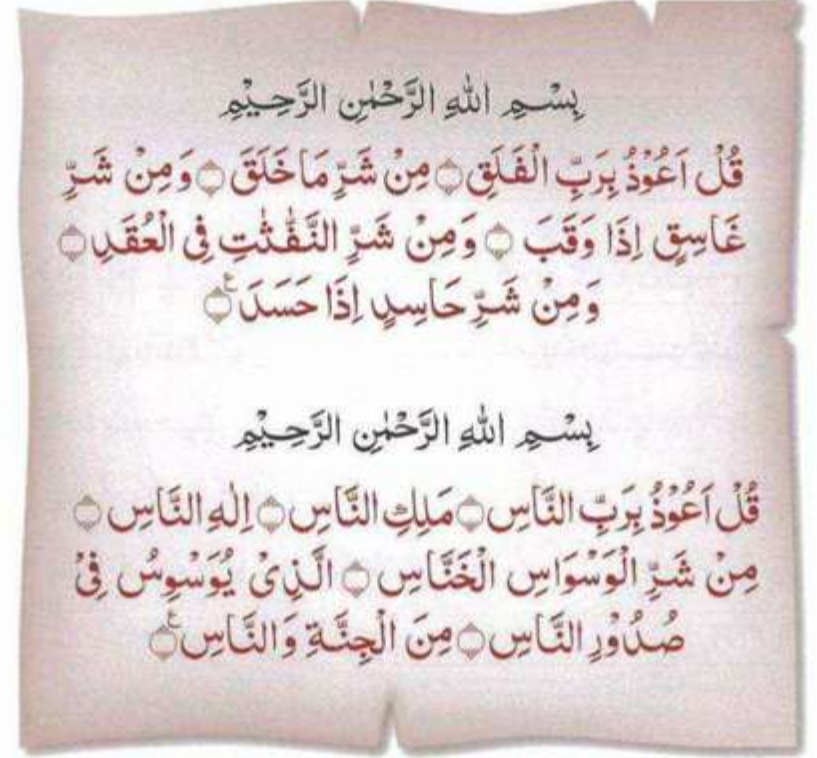 بِسْمِ اللهِ الرَّحْمٰنِ الرَّحِيْمِ
قُلْ اَعُوْذُ بِرَبِّ الْفَلَقِ ۝ مِنْ شَرِّ مَا خَلَقَ ۝ وَمِنْ شَرِّ
غَاسِقٍ اِذَا وَقَبَ ۝ وَمِنْ شَرِّ النَّفّٰثٰتِ فِى الْعُقَدِ ۝
وَمِنْ شَرِّ حَاسِدٍ اِذَا حَسَدَ ۝ ع
بِسْمِ اللهِ الرَّحْمٰنِ الرَّحِيْمِ
قُلْ اَعُوْذُ بِرَبِّ النَّاسِ ۝ مَلِكِ النَّاسِ ۝ اِلٰهِ النَّاسِ ۝
مِنْ شَرِّ الْوَسْوَاسِ الْخَنَّاسِ ۝ الَّذِىْ يُوَسْوِسُ فِىْ
صُدُوْرِ النَّاسِ ۝ مِنَ الْجِنَّةِ وَالنَّاسِ ۝ ع